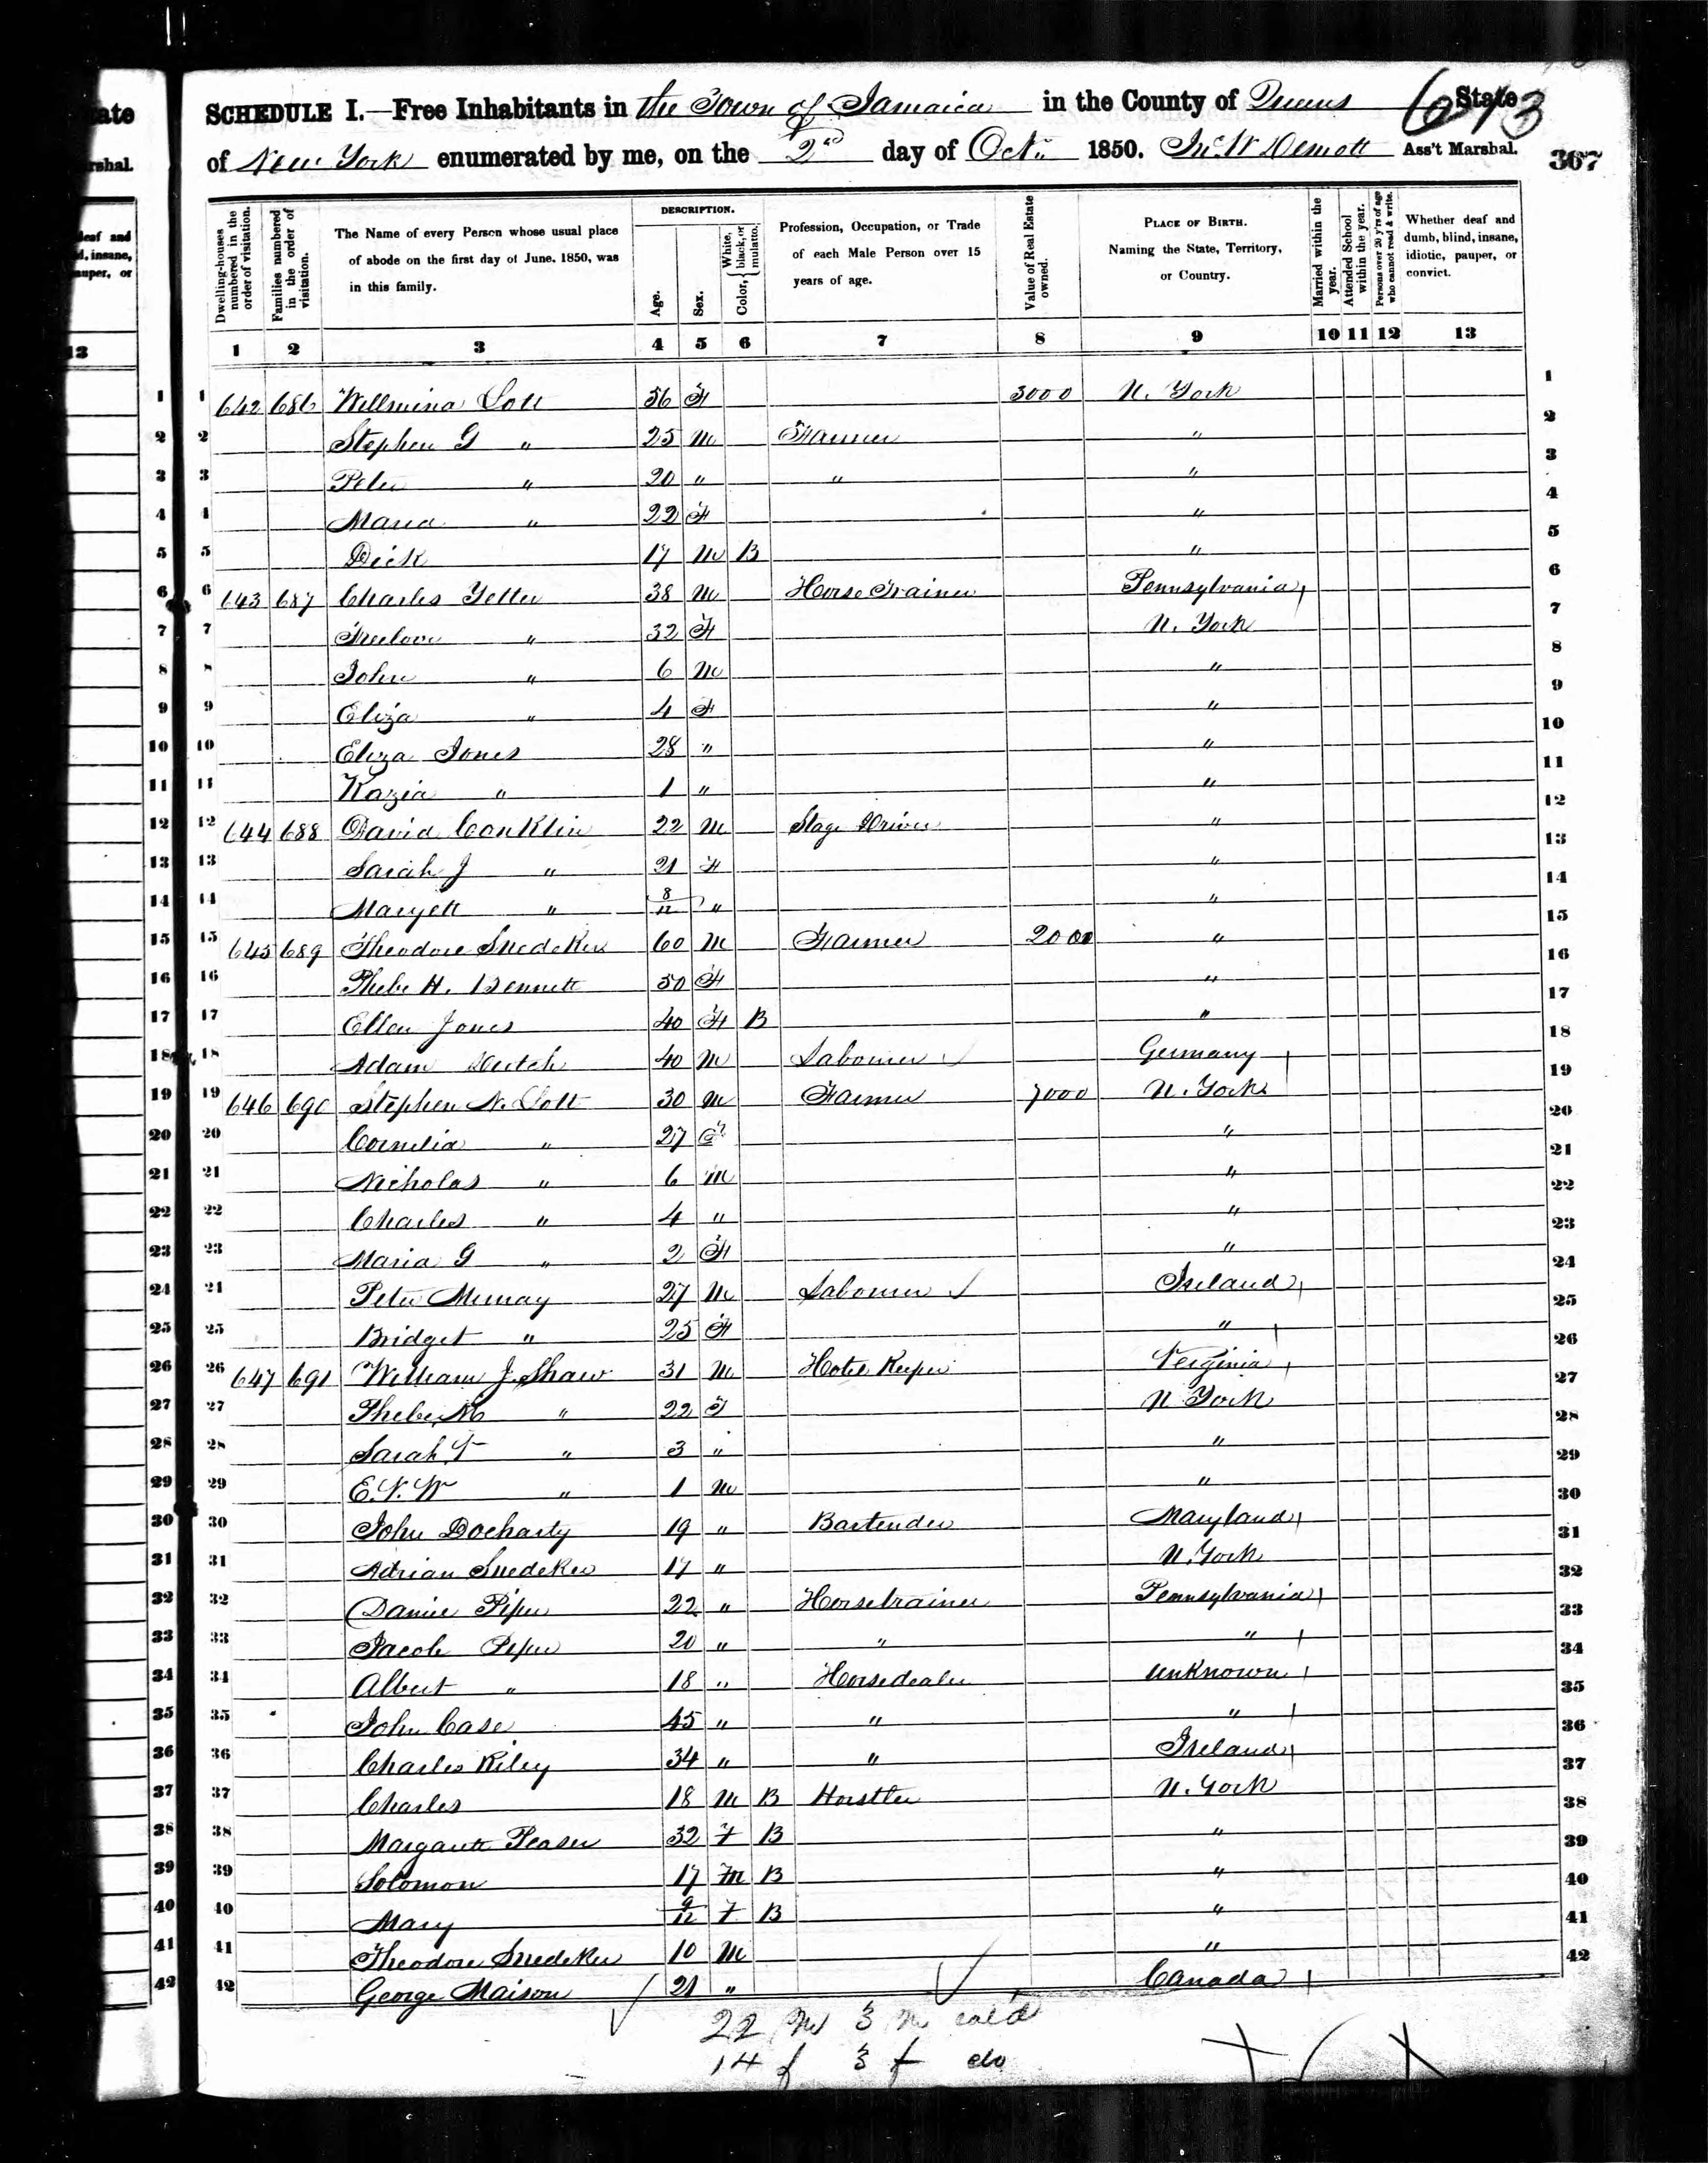 SCHEDULE I.—Free Inhabitants in the Town of Jamaica in the County of Queens State 613
of New York enumerated by me, on the 2nd day of Oct. 1850. Ass't Marshal. 367
Dwelling-houses numbered in the order of visitation.
Families numbered in the order of visitation.
The Name of every Person whose usual place of abode on the first day of June, 1850, was in this family.
DESCRIPTION.
Age.
Sex.
Color, { White, black, or mulatto.
Profession, Occupation, or Trade of each Male Person over 15 years of age.
Value of Real Estate owned.
PLACE OF BIRTH. Naming the State, Territory, or Country.
Married within the year.
Attended School within the year.
Persons over 20 y'rs of age who cannot read & write.
Whether deaf and dumb, blind, insane, idiotic, pauper, or convict.
1 2 3 4 5 6 7 8 9 10 11 12 13
1 642 686 Willmina Lott 56 F 3000 N. York 1
2 Stephen G " 25 M Farmer " 2
3 Peter " 20 " " " 3
4 Maria " 22 F " 4
5 Dick 17 M B " 5
6 643 687 Charles Yetter 38 M Horse Trainer Pennsylvania 6
7 Freelove " 32 F N. York 7
8 John " 6 M " 8
9 Eliza " 4 F " 9
10 Eliza Jones 28 " " 10
11 Kazia " 1 " " 11
12 644 688 David Conklin 22 M Stage Driver " 12
13 Sarah J " 21 F " 13
14 Maryett " 8/12 " " 14
15 645 689 Theodore Snedeker 60 M Farmer 2000 " 15
16 Phebe H. Bennett 50 F " 16
17 Ellen Jones 40 F B " 17
18 Adam Dutch 40 M Labourer Germany 18
19 646 690 Stephen N. Lott 30 M Farmer 7000 N. York 19
20 Cornelia " 27 F " 20
21 Nicholas " 6 M " 21
22 Charles " 4 " " 22
23 Maria G " 2 F " 23
24 Peter Murray 27 M Labourer Ireland 24
25 Bridget " 25 F " 25
26 647 691 William J. Shaw 31 M Hotel Keeper Verginia 26
27 Phebe M " 22 F N York 27
28 Sarah " 3 " " 28
29 E. V. W " 1 M " 29
30 John Docharty 19 " Bartender Maryland 30
31 Adrian Snedeker 17 " N. York 31
32 Daniel Piper 22 " Horsetrainer Pennsylvania 32
33 Jacob Piper 20 " " " 33
34 Albert " 18 " Horsedealer Unknown 34
35 John Case 45 " " " 35
36 Charles Riley 34 " " Ireland 36
37 Charles 18 M B Horstler N. York 37
38 Margarett 32 F B " 38
39 Solomon 17 M B " 39
40 Mary 9/12 F B " 40
41 Theodore Snedeker 10 M " 41
42 George Maison 21 " Canada 42
22 M 3 M col'd
14 f 3 f do